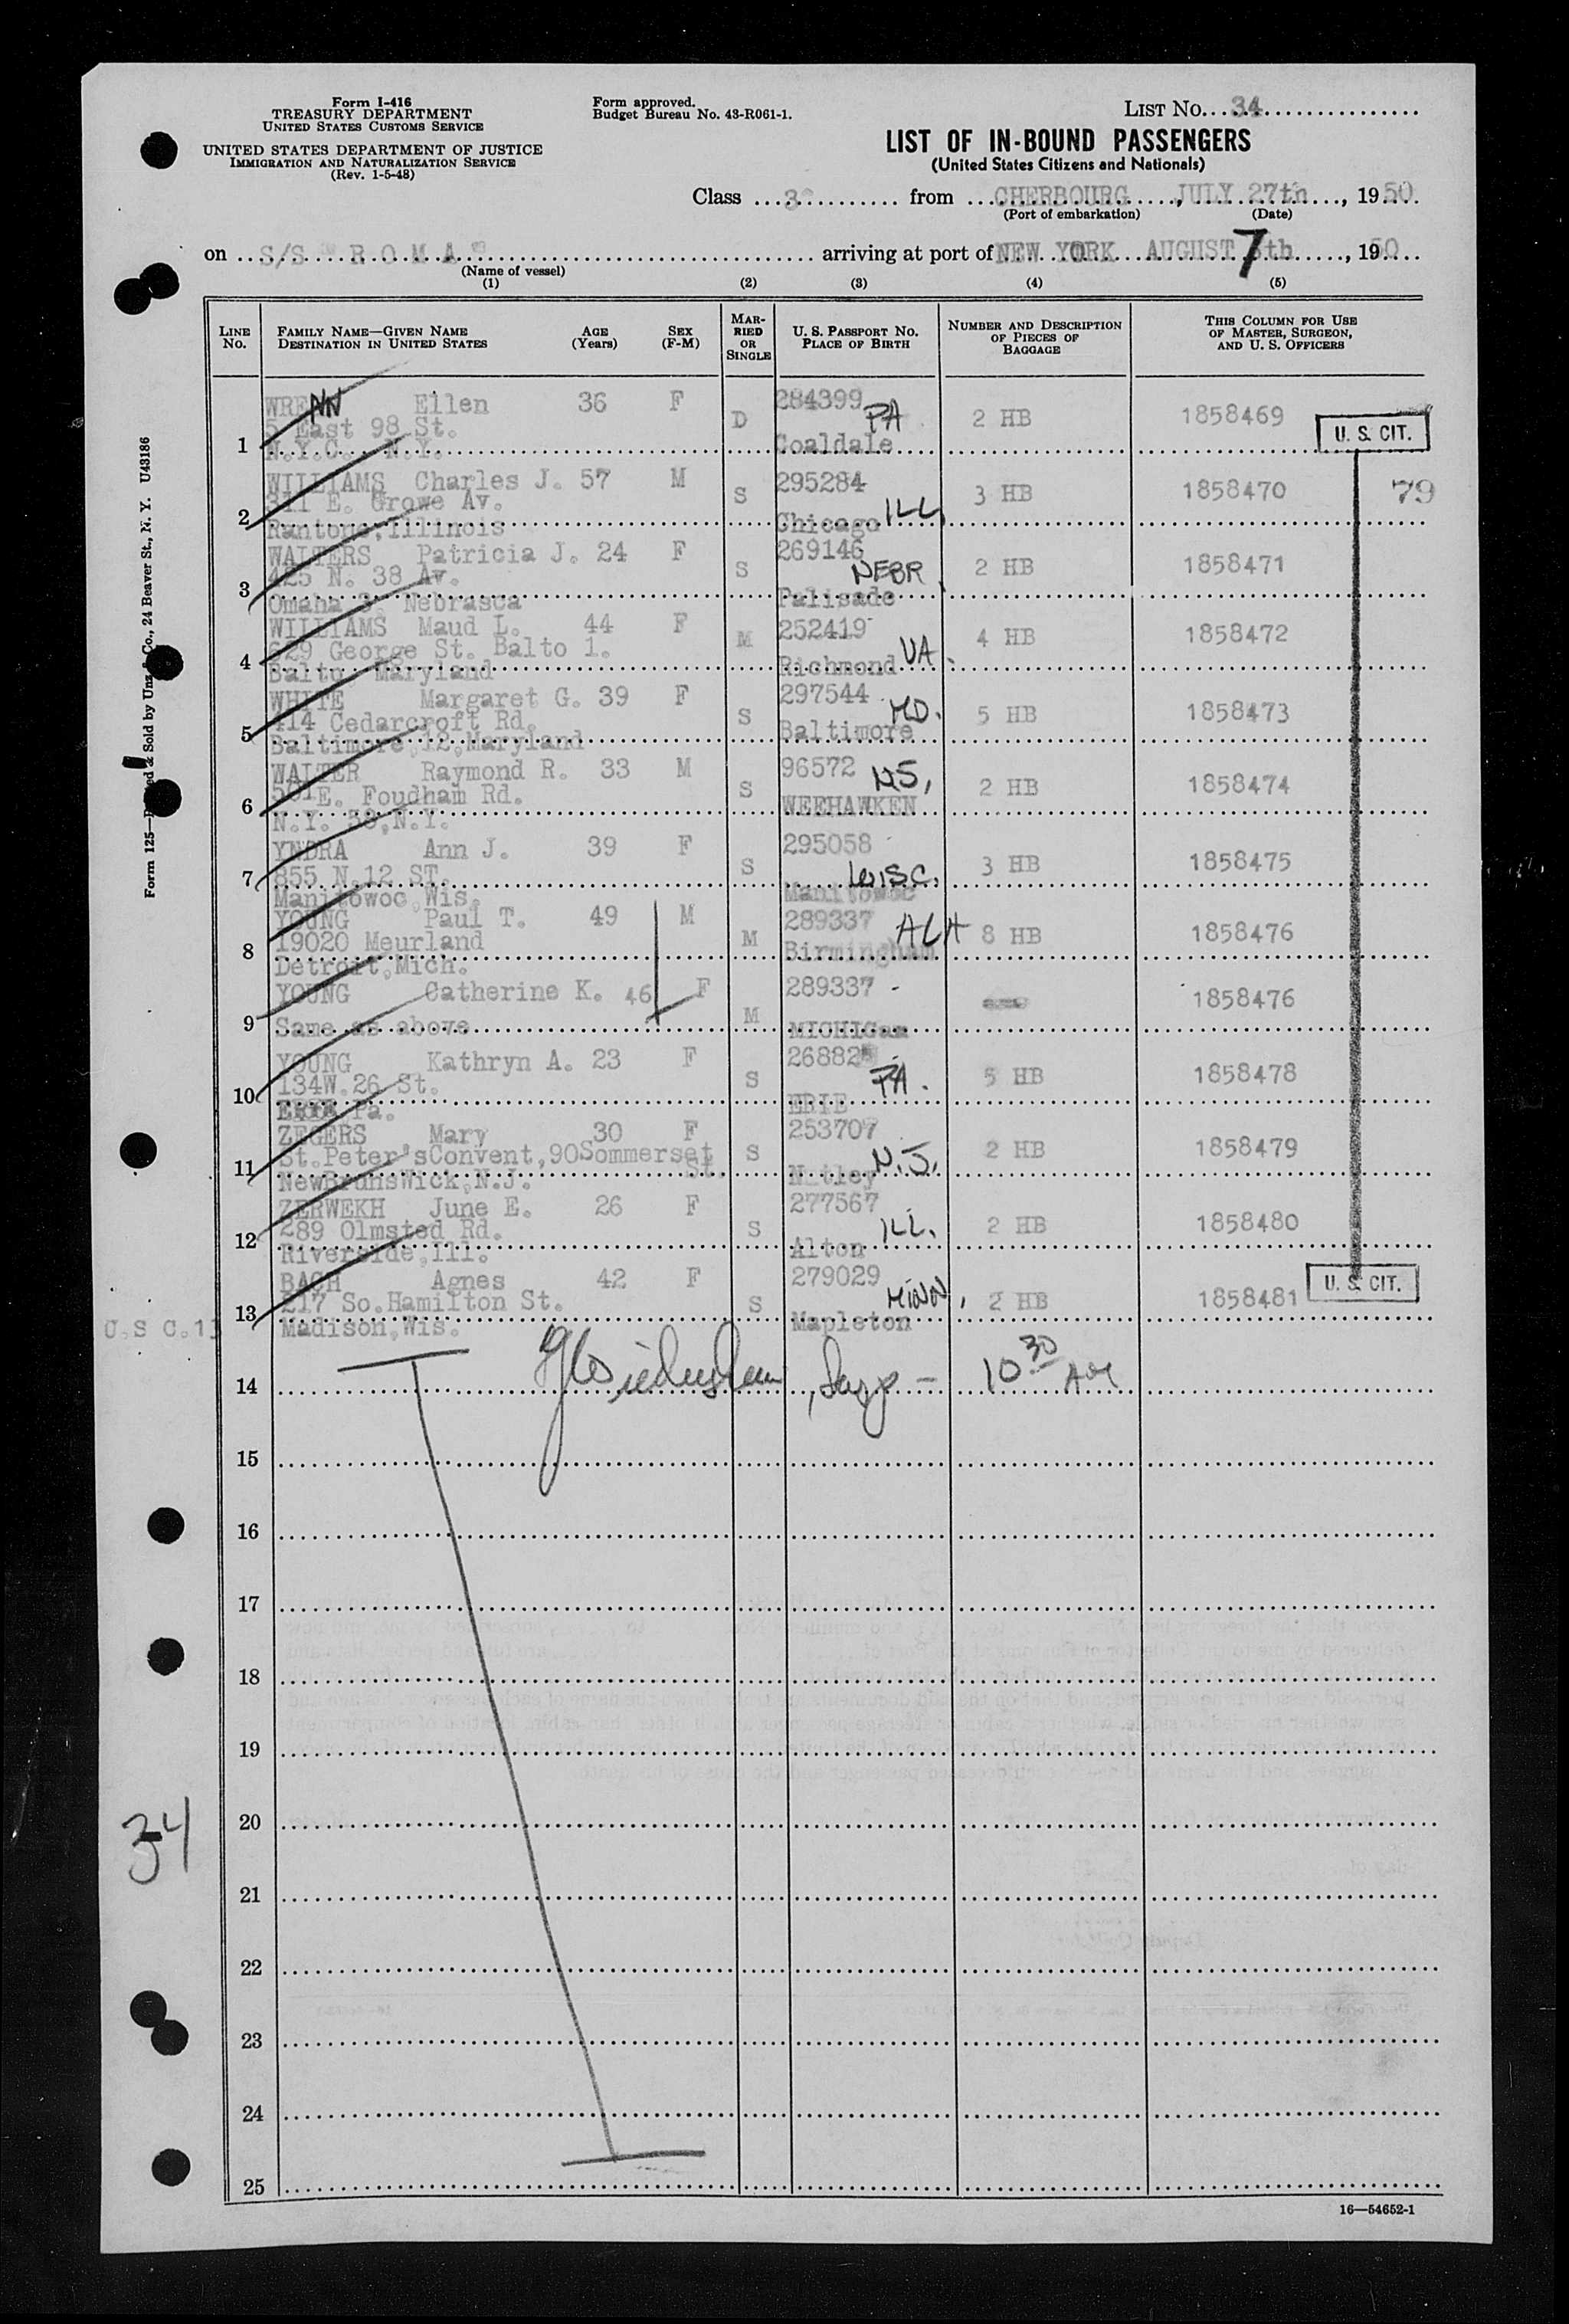 Form I-416
TREASURY DEPARTMENT
UNITED STATES CUSTOMS SERVICE
UNITED STATES DEPARTMENT OF JUSTICE
IMMIGRATION AND NATURALIZATION SERVICE
(Rev. 1-5-48)
Form approved.
Budget Bureau No. 43-R061-1.
LIST No. 34
LIST OF IN-BOUND PASSENGERS
(United States Citizens and Nationals)
Class 3 from CHERBOURG, JULY 27th, 1950
(Port of embarkation) (Date)
on S/S "R O M A" arriving at port of NEW YORK AUGUST 7th, 1950
(Name of vessel)
(1) (2) (3) (4) (5)
LINE No. FAMILY NAME—GIVEN NAME DESTINATION IN UNITED STATES AGE (Years) SEX (F-M) MARRIED OR SINGLE U. S. PASSPORT No. PLACE OF BIRTH NUMBER AND DESCRIPTION OF PIECES OF BAGGAGE THIS COLUMN FOR USE OF MASTER, SURGEON, AND U. S. OFFICERS
WRENN Ellen 36 F 284399
5 East 98 St. D PA 2 HB 1858469 U. S. CIT.
1 N.Y.C. N.Y. Coaldale
WILLIAMS Charles J. 57 M 295284
311 E. Growe Av. S ILL 3 HB 1858470 79
2 Rantone, Illinois Chicago
WALTERS Patricia J. 24 F 269146
425 N. 38 Av. S NEBR 2 HB 1858471
3 Omaha 3. Nebrasca Palisade
WILLIAMS Maud L. 44 F 252419
629 George St. Balto 1. M VA 4 HB 1858472
4 Balto, Maryland Richmond
WHITE Margaret G. 39 F 297544
414 Cedarcroft Rd. S MD. 5 HB 1858473
5 Baltimore,12,Maryland Baltimore
WALTER Raymond R. 33 M 96572
501E. Foudham Rd. S NJ, 2 HB 1858474
6 N.Y. 58,N.Y. WEEHAWKEN
YNDRA Ann J. 39 F 295058
855 N.12 ST. S WISC. 3 HB 1858475
7 Manitowoc,Wis. Manitowoc
YOUNG Paul T. 49 M 289337
19020 Meurland M ALA 8 HB 1858476
8 Detroit,Mich. Birmingham
YOUNG Catherine K. 46 F 289337 - 1858476
9 Same as above M MICHIGan
YOUNG Kathryn A. 23 F 26882
134W.26 St. S PA. 5 HB 1858478
10 ERIE Pa. ERIE
ZEGERS Mary 30 F 253707
St.Peter'sConvent,90Sommerset St. S N.J. 2 HB 1858479
11 NewBrunsWick,N.J. Nutley
ZERWEKH June E. 26 F 277567
289 Olmsted Rd. S ILL. 2 HB 1858480
12 Riverside,Ill. Alton
BACH Agnes 42 F 279029
217 So.Hamilton St. S MINN, 2 HB 1858481 U. S. CIT.
13 Madison,Wis. Mapleton
U.S C.13
14 10 30 AM
15
16
17
18
19
20
21
22
23
24
25
34
Form 125—Printed & Sold by Unz & Co., 24 Beaver St., N. Y. U43186
16—54652-1